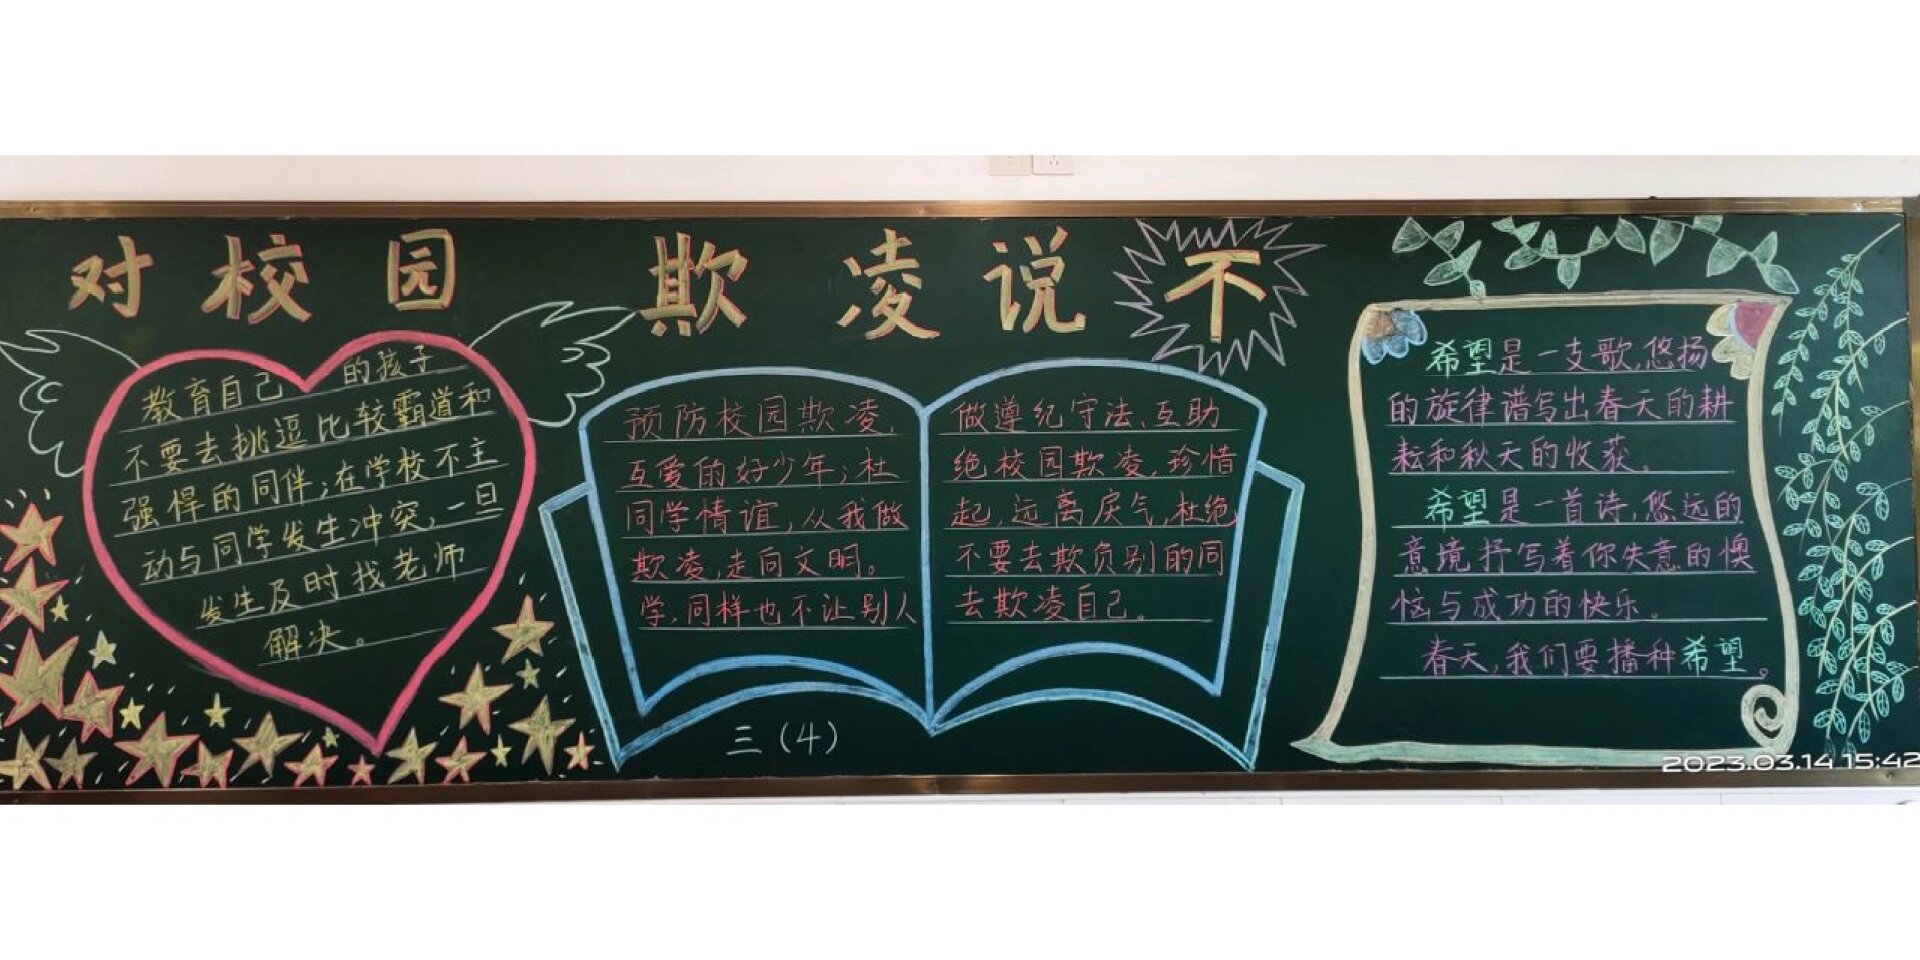 对校园欺凌说不
教育自己的孩子
不要去挑逗比较霸道和
强悍的同伴;在学校不主
动与同学发生冲突,一旦
发生及时找老师
解决。
预防校园欺凌,
互爱的好少年;杜
同学情谊,从我做
欺凌,走向文明。
学,同样也不让别人
做遵纪守法、互助
绝校园欺凌,珍惜
起,远离戾气,杜绝
不要去欺负别的同
去欺凌自己。
三(4)
希望是一支歌,悠扬
的旋律谱写出春天的耕
耘和秋天的收获。
希望是一首诗,悠远的
意境抒写着你失意的懊
恼与成功的快乐。
春天,我们要播种希望。
2023.03.14 15:42